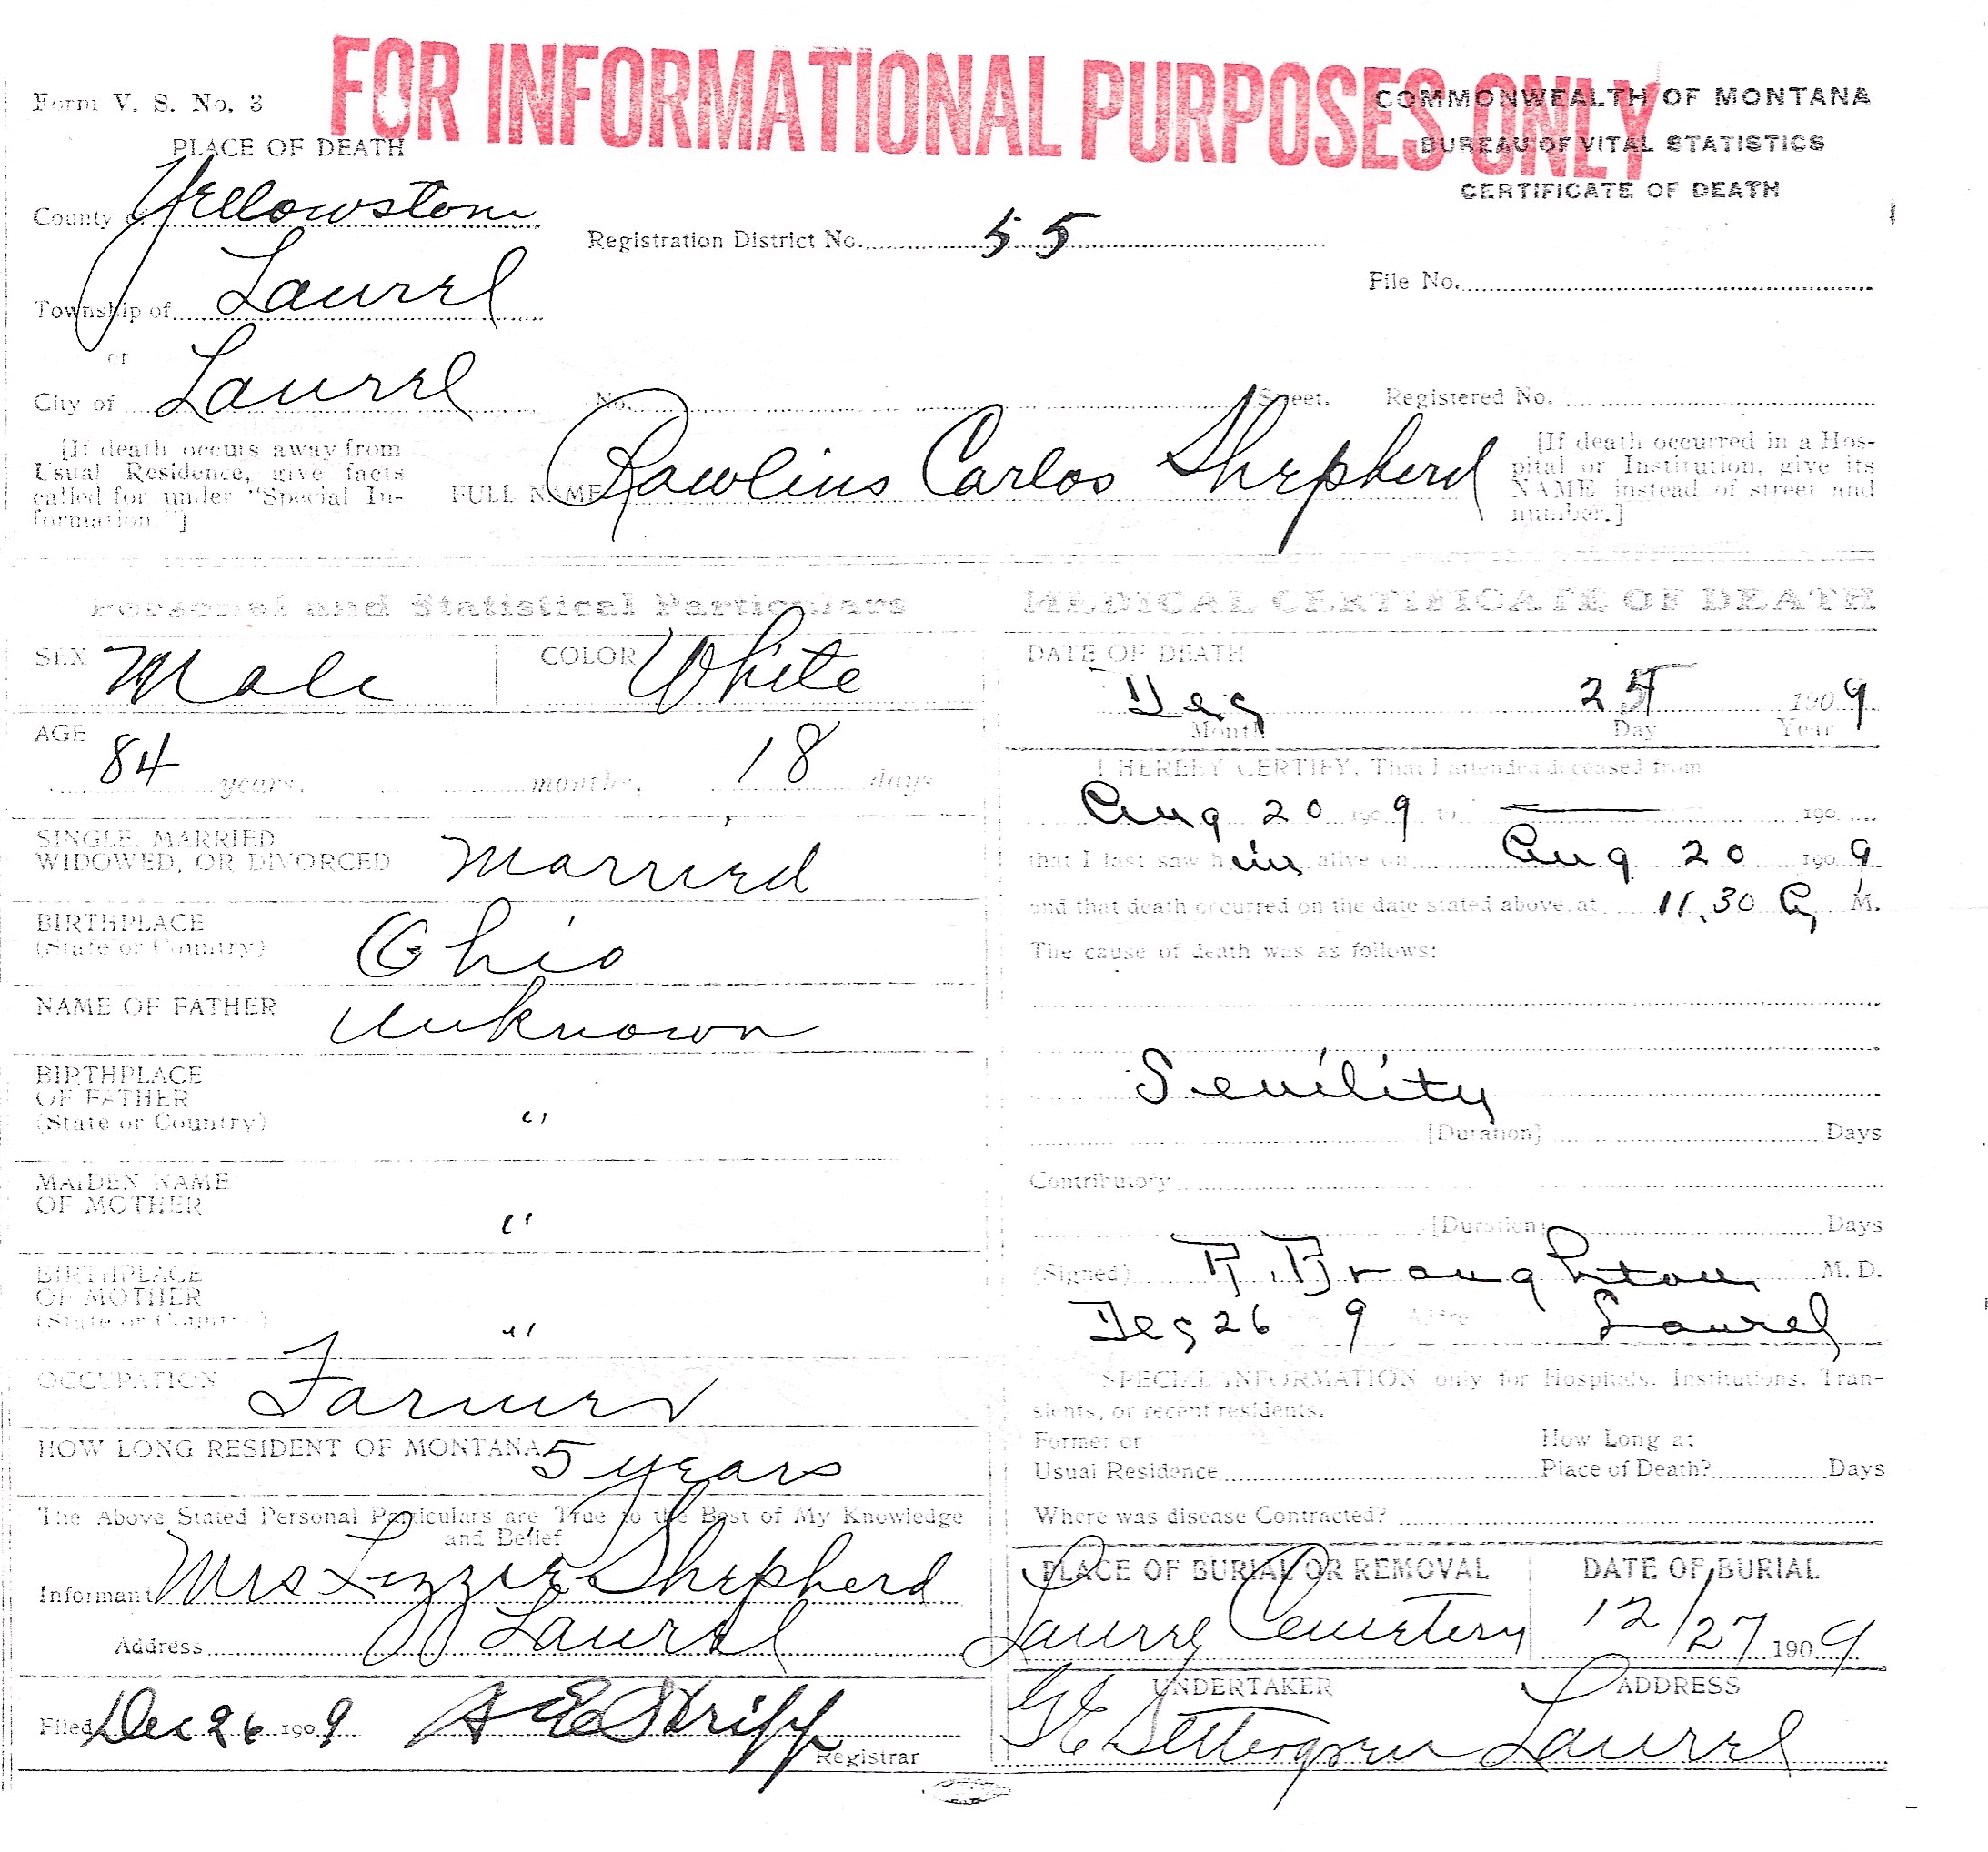 FOR INFORMATIONAL PURPOSES ONLY
Form V. S. No. 3
COMMONWEALTH OF MONTANA
BUREAU OF VITAL STATISTICS
CERTIFICATE OF DEATH
PLACE OF DEATH
County of Yellowstone
Registration District No. 55
File No.
Township of Laurel
or
City of Laurel No. Street. Registered No.
[If death occurs away from
Usual Residence, give facts
called for under "Special In-
formation."]
FULL NAME Rawlins Carlos Shepherd
[If death occurred in a Hos-
pital or Institution, give its
NAME instead of street and
number.]
Personal and Statistical Particulars
SEX Male COLOR White
AGE
84 years, months, 18 days
SINGLE, MARRIED
WIDOWED, OR DIVORCED Married
BIRTHPLACE
(State or Country) Ohio
NAME OF FATHER Unknown
BIRTHPLACE
OF FATHER
(State or Country) "
MAIDEN NAME
OF MOTHER "
BIRTHPLACE
OF MOTHER
(State or Country) "
OCCUPATION Farmer
HOW LONG RESIDENT OF MONTANA 5 years
The Above Stated Personal Particulars are True to the Best of My Knowledge
and Belief
Informant Mrs Lizzie Shepherd
Address Laurel
Filed Dec 26 1909
Registrar
MEDICAL CERTIFICATE OF DEATH
DATE OF DEATH
Dec 25 1909
Month Day Year
I HEREBY CERTIFY, That I attended deceased from
Aug 20 1909 to 190
that I last saw him alive on Aug 20 1909
and that death occurred on the date stated above, at 11.30 A M.
The cause of death was as follows:
Senility
[Duration] Days
Contributory
[Duration] Days
(Signed) M. D.
Dec 26 9 Laurel
SPECIAL INFORMATION only for Hospitals, Institutions, Tran-
sients, or recent residents.
Former or
Usual Residence
How Long at
Place of Death? Days
Where was disease Contracted?
PLACE OF BURIAL OR REMOVAL
Laurel Cemetery
DATE OF BURIAL
12/27 1909
UNDERTAKER
ADDRESS
Laurel